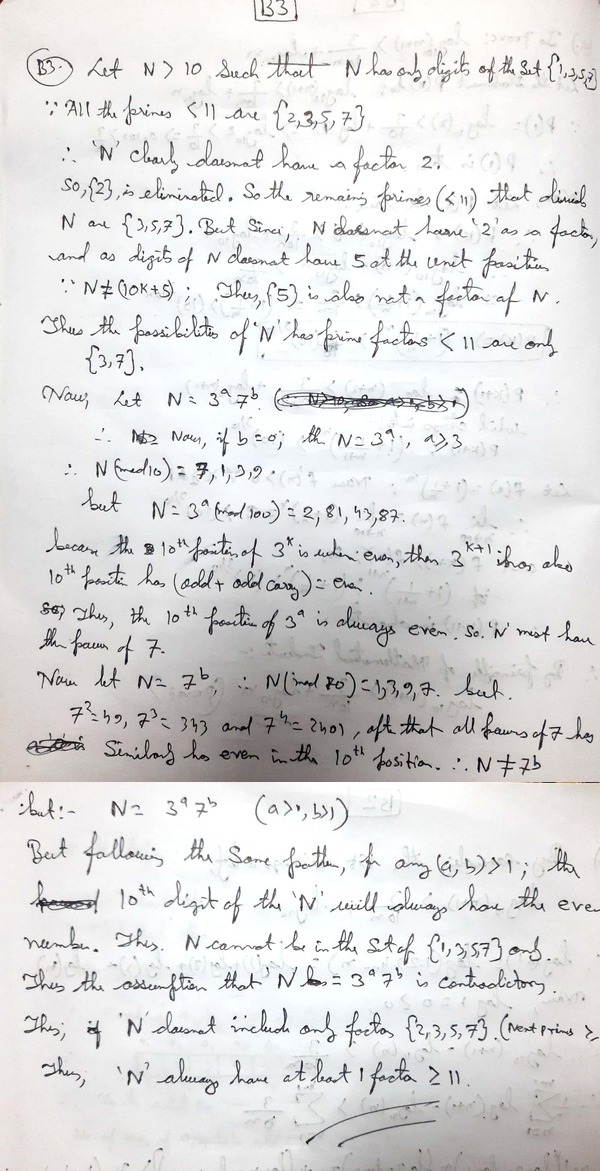 B3
B3. Let N > 10 such that N has only digits of the set {1,3,5,7}
∵ All the primes < 11 are {2,3,5,7}
∴ 'N' clearly doesnot have a factor 2.
So, {2}, is eliminated. So the remains primes (< 11) that divid
N are {3,5,7}. But Since, N doesnot have '2' as a factor,
and as digits of N doesnot have 5 at the unit position
∵ N ≠ (10K+5) ; Thus, {5} is also not a factor of N.
Thus the possibilities of 'N' has prime factors < 11 are only
{3,7}.
Now, Let N = 3^a 7^b.
∴ Now, if b = 0; th N = 3^a, a ≥ 3
∴ N (mod 10) = 7, 1, 3, 9.
but N = 3^a (mod 100) = 2, 81, 43, 87.
because the 10th position of 3^k is when even, then 3^(k+1) also
10th positin has (odd + odd carry) = even.
Thus, the 10th position of 3^a is always even. So 'N' must have
the power of 7.
Now let N = 7^b, ∴ N (mod 10) = 1,3,9,7. but
7^2 = 49, 7^3 = 343 and 7^4 = 2401, aft that all powers of 7 has
Similarly has even in the 10th position. ∴ N ≠ 7^b
but:- N = 3^a 7^b (a>1, b>1)
But following the Same pattern, for any (a, b) > 1; the
10th digit of the 'N' will always have the even
number. Thus. N cannot be in the Set of {1,3,5,7} only.
Thus the assumption that 'N = 3^a 7^b is contradictory.
Thus; 'N' doesnot include only factors {2,3,5,7}. (Next prime ≥
Thus, 'N' always have at least 1 factor ≥ 11.